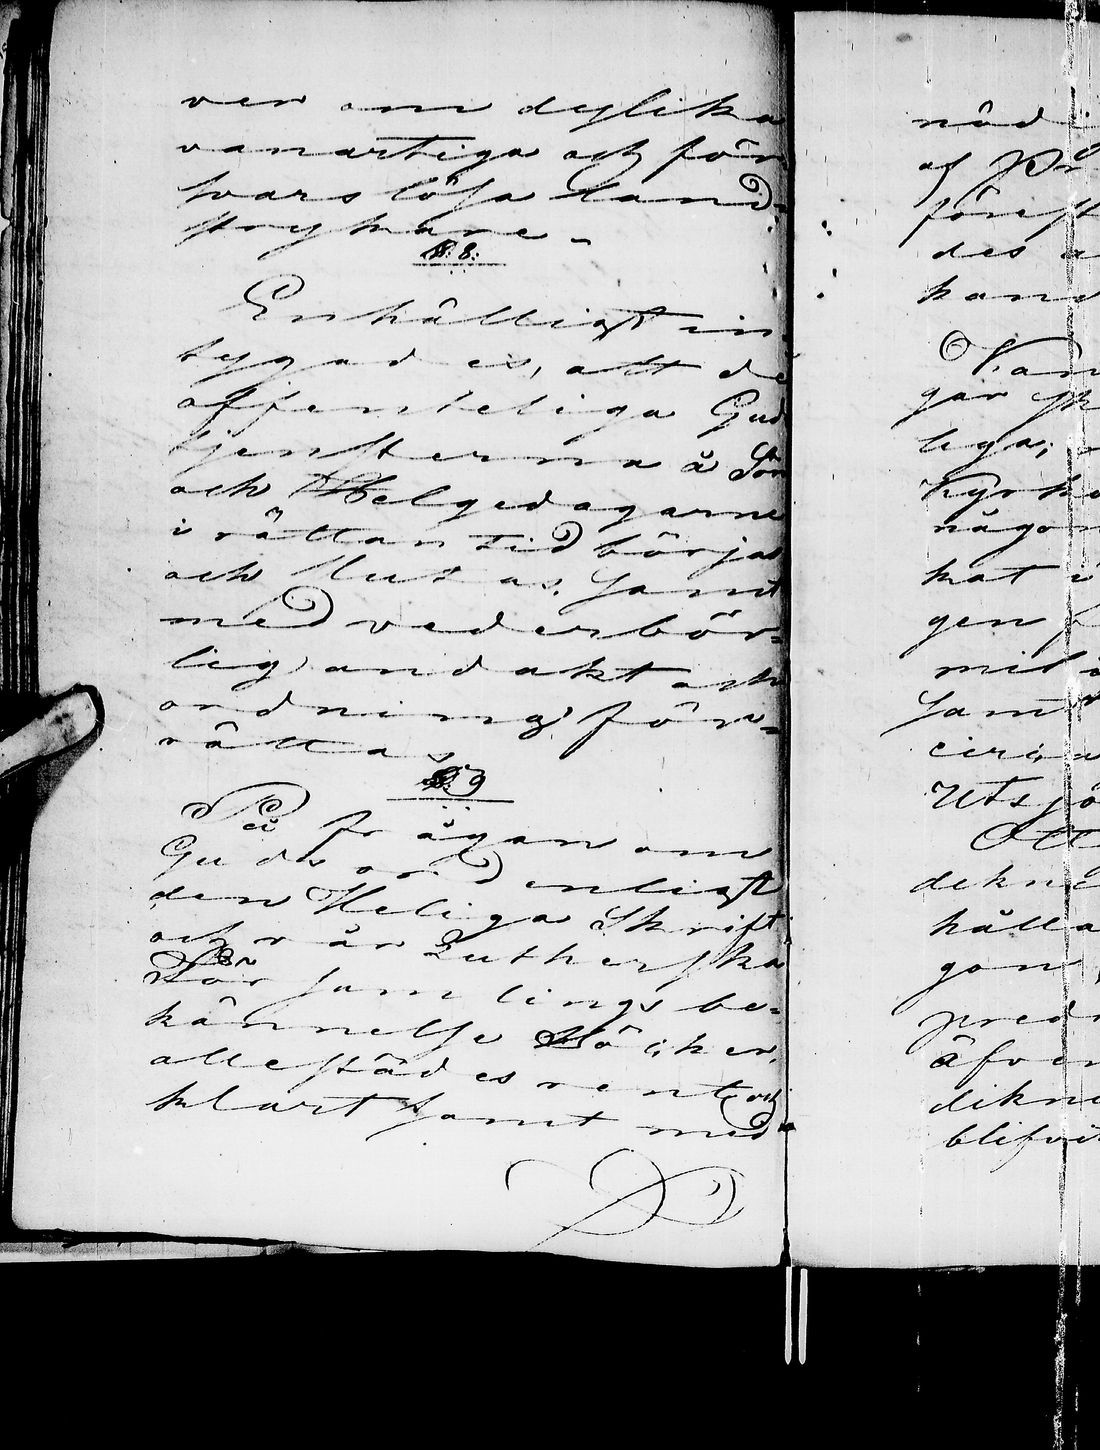 ver om dylika
vanartiga och för
svarslösa land-
strykare.
§. 8.
Enhälligt in
tygades, att de
offenteliga Gud
tjensterna å Sön
och Helgedagarne
i rättan tid börjas
och slutas, samt
med vederbör-
lig andakt och
ordning för-
rättas
§ 9
På frågan om
Guds ord enligt
den Heliga Skrift
och vår Lutherska
För samlings be-
kännelse Böcker,
allestädes rent och
klart samt med
nöd
af Pr
förest
des a
kand
Kän
gar sk
liga;
Kyrko
någon
kat i
gen
mil
samt
circa
Utsjö
Ott
dekne
hålla
gon
pred
äfven
dikne
blifvit